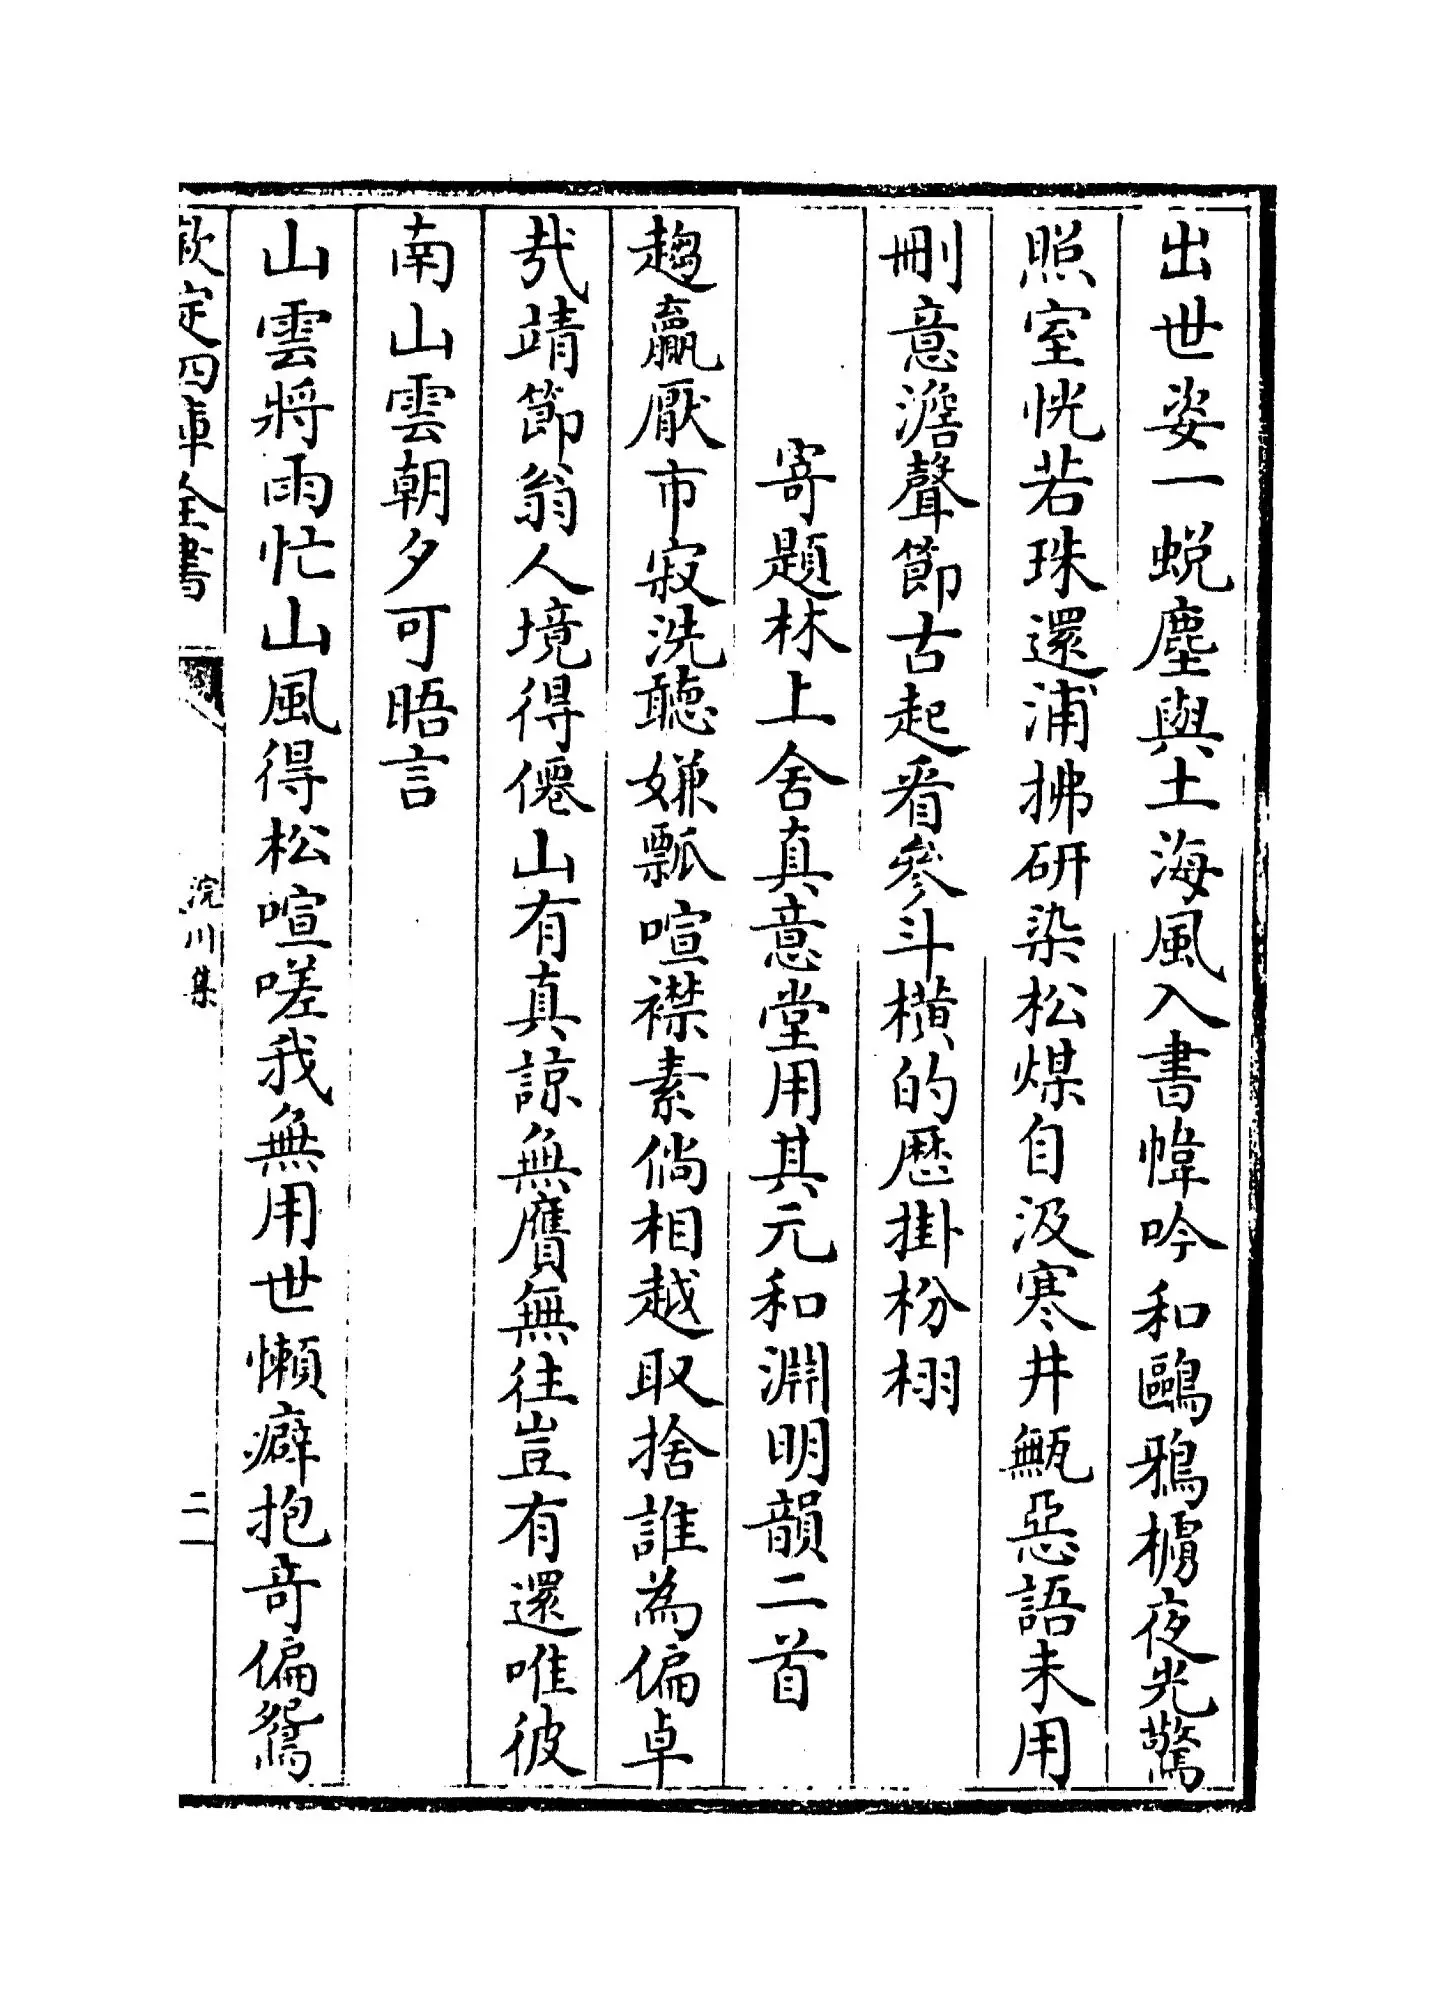 出世姿一蛻塵與土海風入書幃吟和鷗鴉櫓夜光驚
照室恍若珠還浦拂研染松煤自汲寒井甒惡語未用
刪意澹聲節古起看參斗橫的歷掛枌栩
寄題林上舍真意堂用其元和淵明韻二首
趨贏厭市寂洗聽嫌瓢喧襟素倘相越取捨誰為偏卓
㢤靖節翁人境得僊山有真諒無贗無往豈有還唯彼
南山雲朝夕可晤言
山雲將雨忙山風得松喧嗟我無用世懶癖抱奇偏鴛
欽定四庫全書
浣川集
二